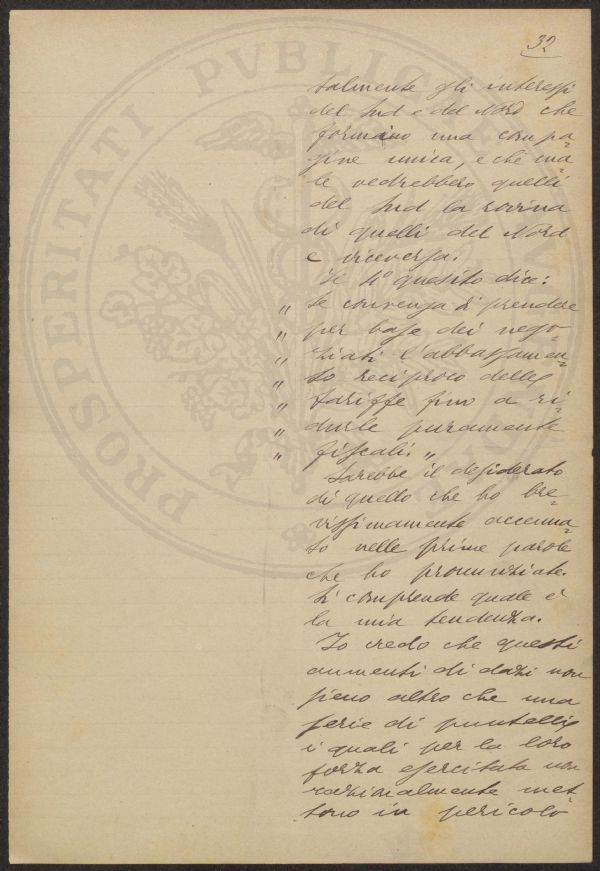 32
talmente gli interessi
del Sud e del Nord che
formano una compa=
gine unica, e che ma=
le vedrebbero quelli
del Sud la rovina
di quelli del Nord
e viceversa.
Il 4º quesito dice:
„ Se convenga di prendere
„ per base dei nego=
„ ziati l'abbassamen=
„ to reciproco delle
„ tariffe fino a ri=
„ durle puramente
„ fiscali. „
Sarebbe il desiderato
di quello che ho bre=
vissimamente accenna=
to nelle prime parole
che ho pronunziate.
Si comprende quale è
la mia tendenza.
Io credo che questi
aumenti di dazi non
sieno altro che una
serie di puntelli
i quali per la loro
forza esercitata non
razionalmente met=
tono in pericolo
PROSPERITATI PVBLICAE